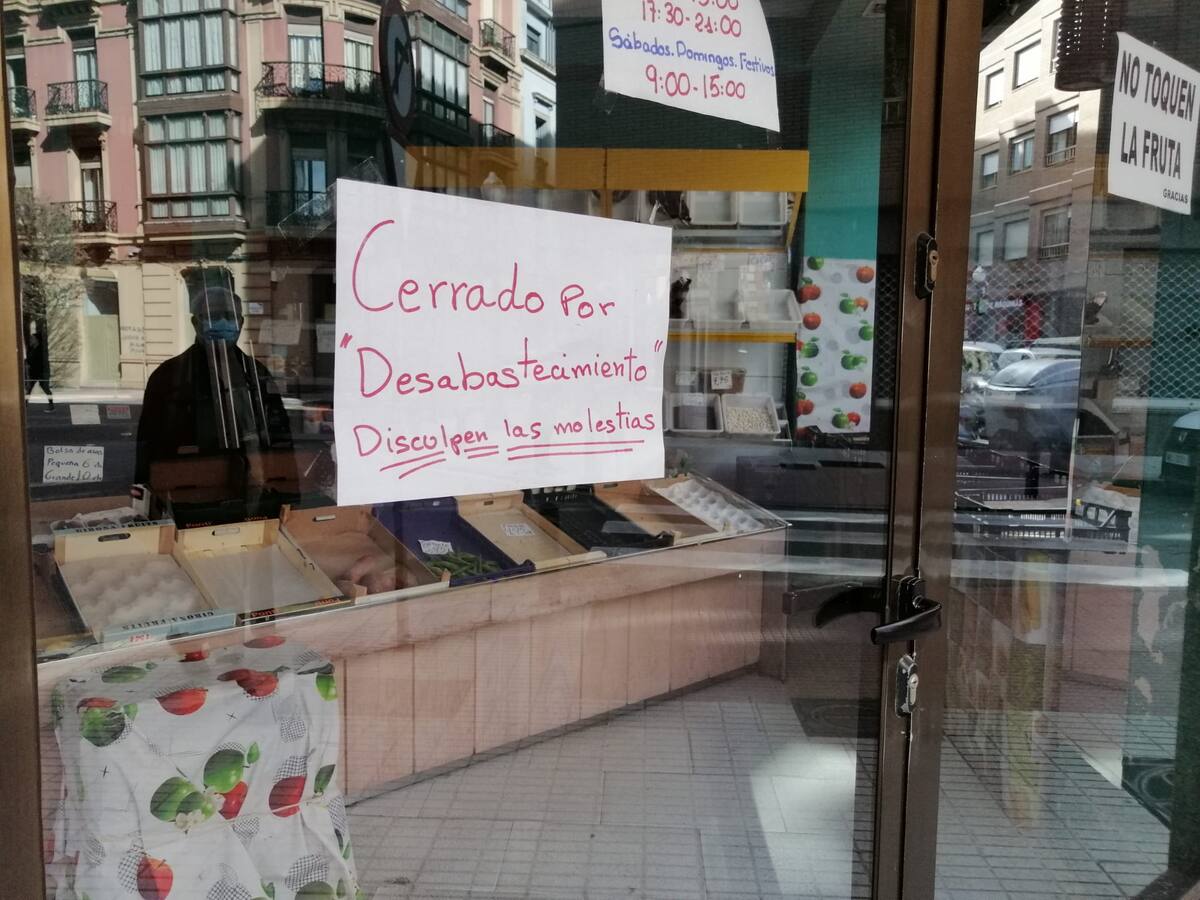 17:30-21:00
Sábados. Domingos. Festivos
9:00-15:00
NO TOQUEN
LA FRUTA
GRACIAS
Cerrado Por
"Desabastecimiento"
Disculpen las molestias
Bolsa de asas
Pequeña 6
Grande 10
GIRONA FRUITS